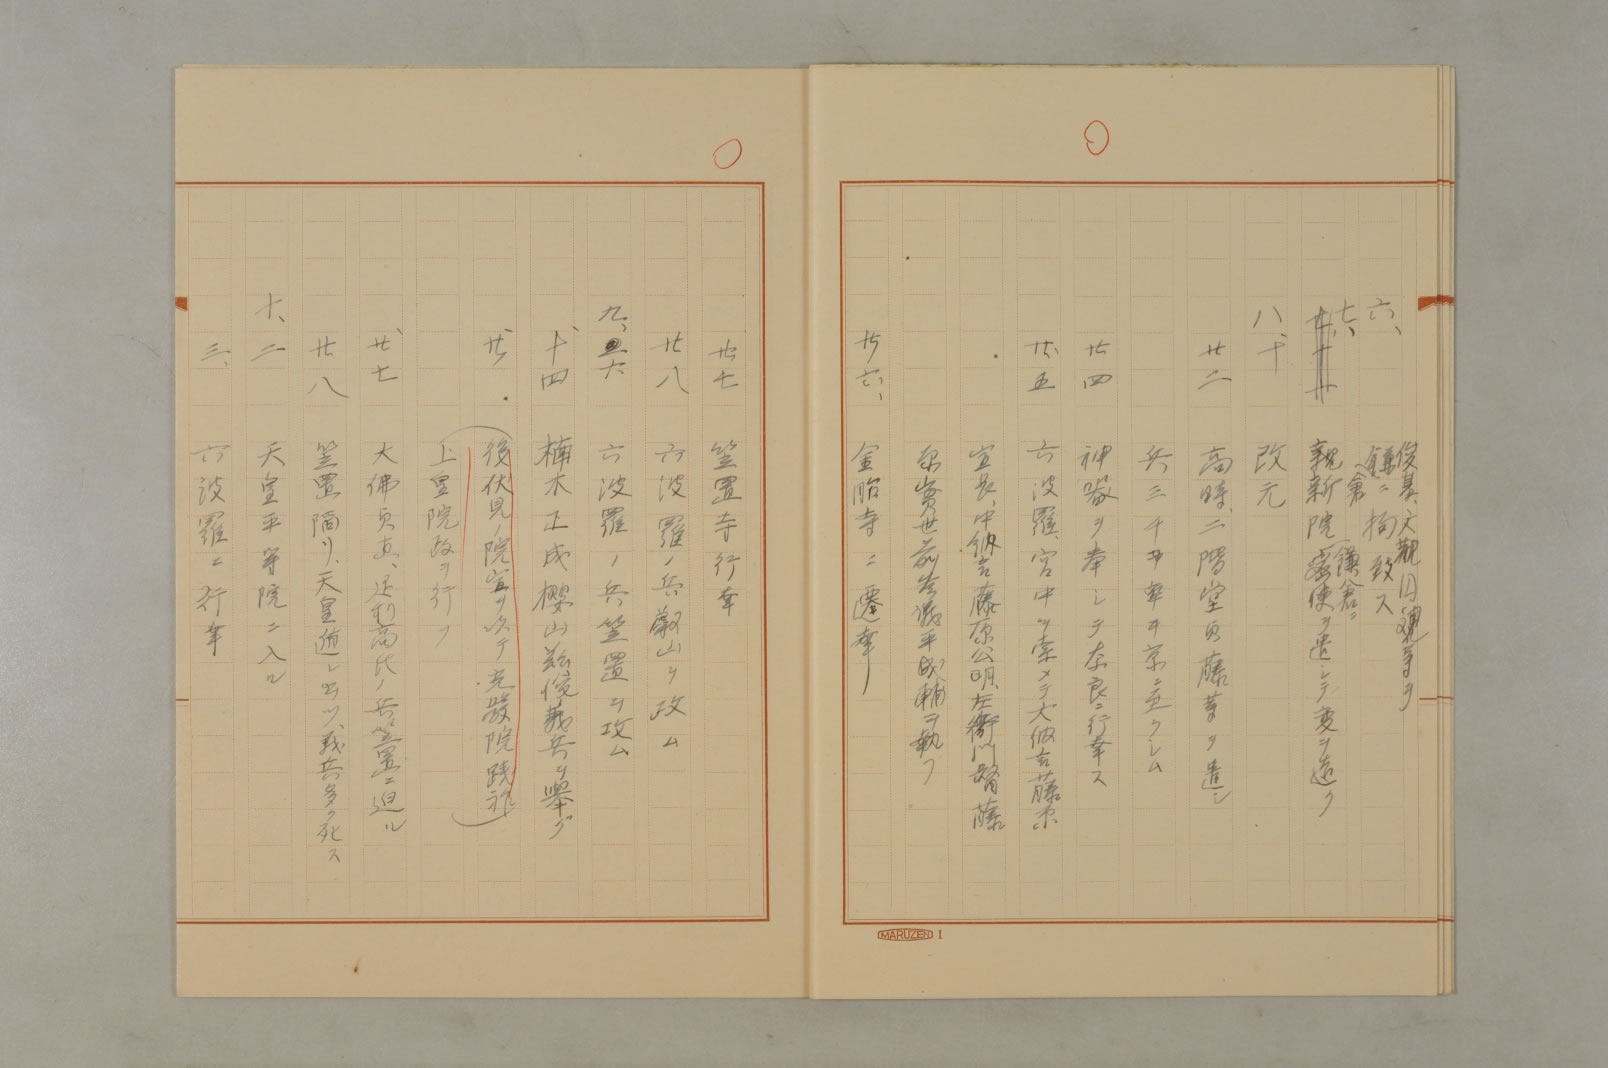 六、 俊基、文觀、円観等ヲ
鎌倉ニ拘致ス
七、 鎌倉ニ
新院密使ヲ遣シテ変ヲ
八、十 改元
廿二 高時、二階堂貞藤等ヲ遣シ
兵三千ヲ率ヰ京ニ至ラシム
廿四 神器ヲ奉シテ奈良ニ行幸ス
廿五 六波羅、宮中ヲ索メテ大納言藤原
宣房、中納言藤原公明、左衛門督藤
原實世、前参議平成輔ヲ執フ
廿六、 金胎寺ニ遷幸
廿七 笠置寺行幸
廿八 六波羅ノ兵叡山ヲ攻ム
九、六 六波羅ノ兵笠置ヲ攻ム
十四 楠木正成櫻山茲俊義兵ヲ舉グ
廿 後伏見ノ院宣ヲ以テ光嚴院踐祚
上皇院政ヲ行フ
廿七 大佛貞直、足利高氏ノ兵笠置ニ迫ル
廿八 笠置陥リ、天皇遁レ出ヅ、戦兵多ク死ス
十、二 天皇平等院ニ入ル
三、 六波羅ニ行幸
MARUZEN 1